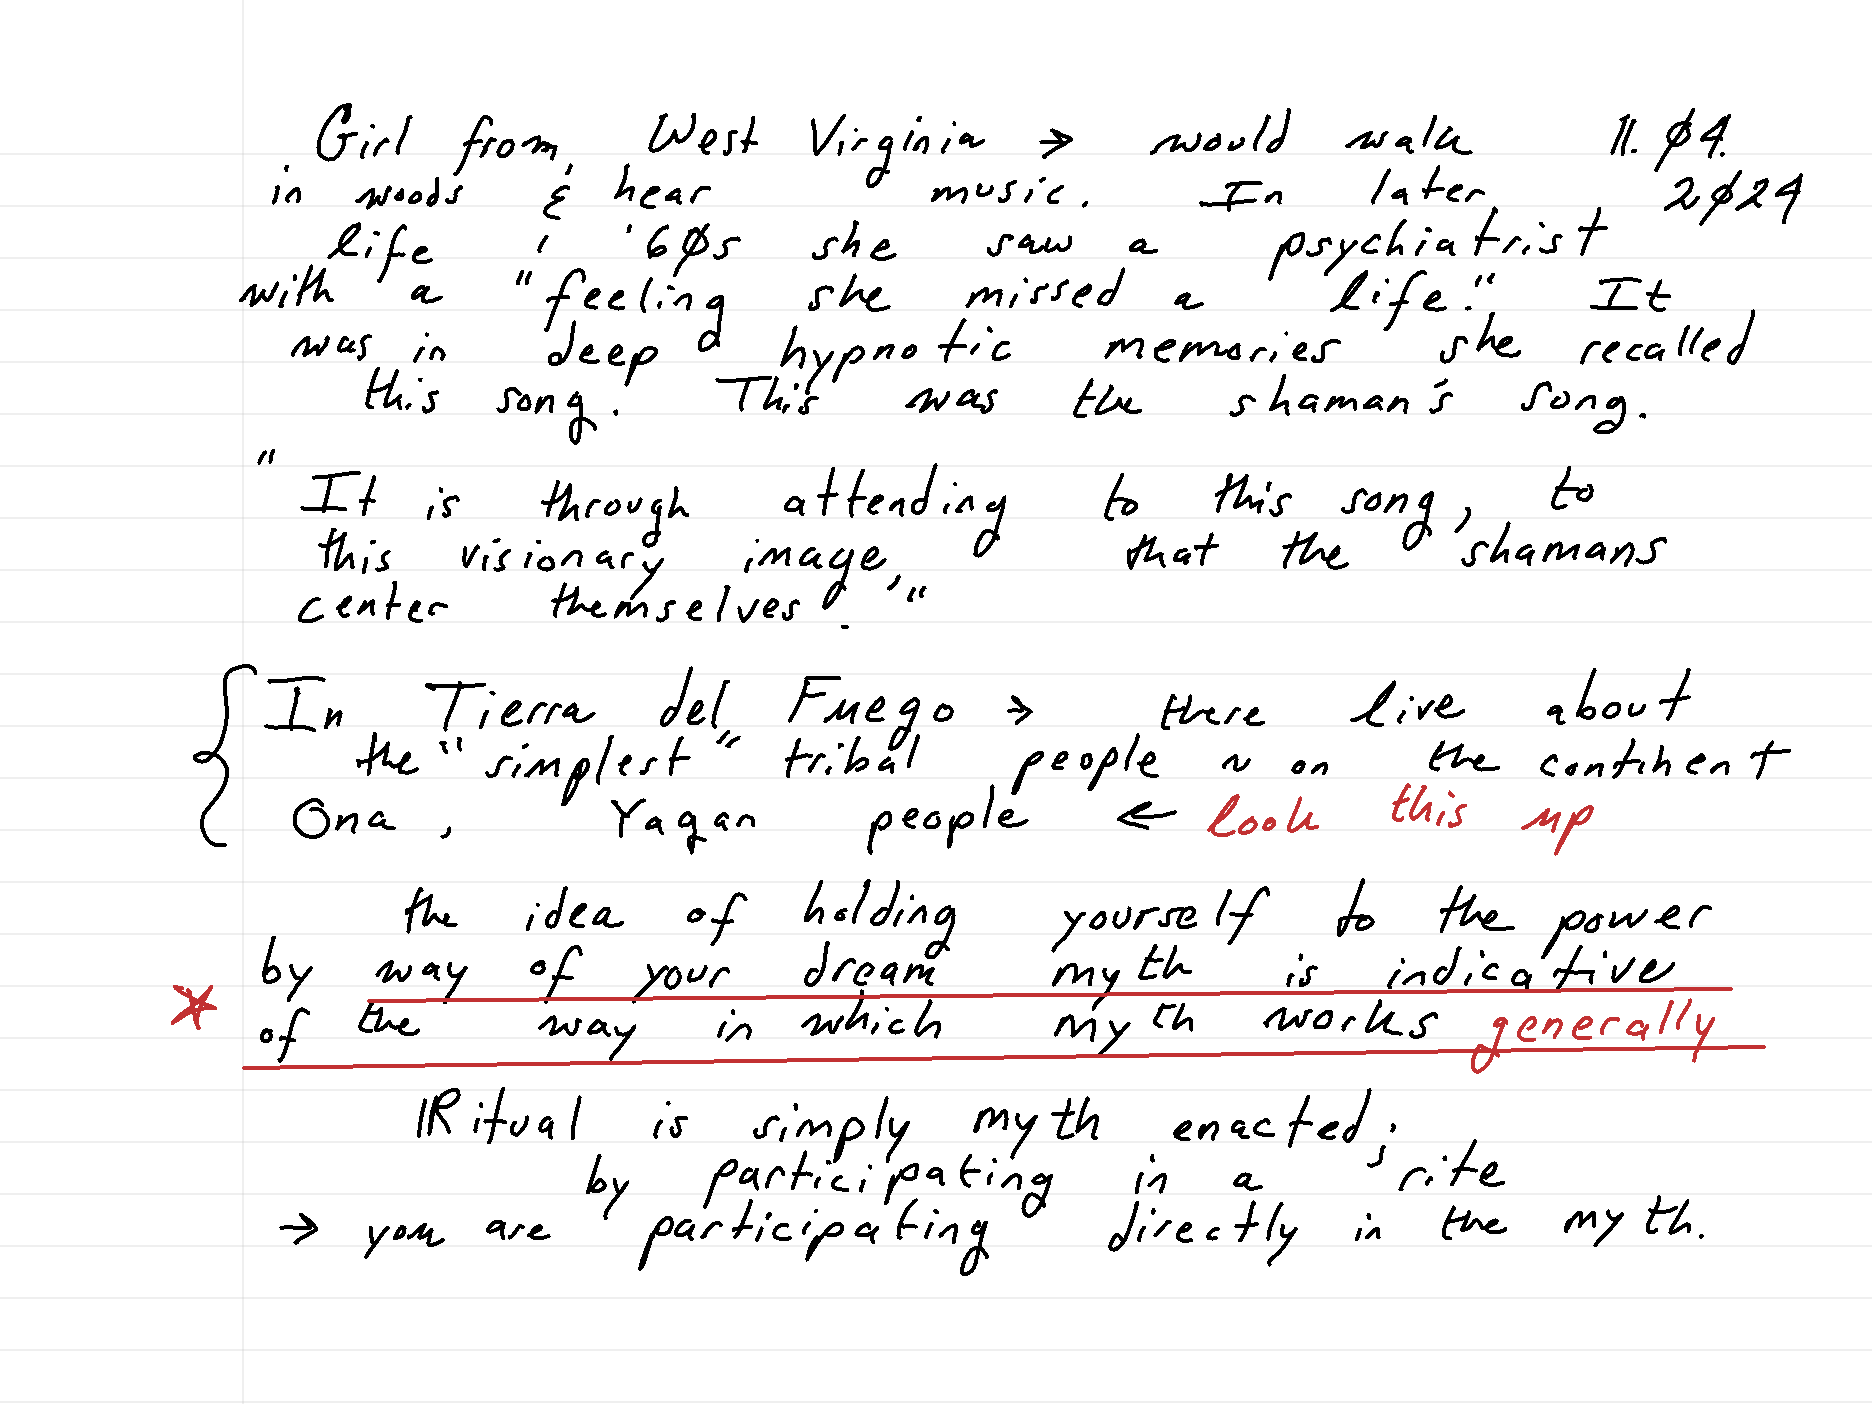 Girl from West Virginia → would walk 11.Ø4.
in woods & hear music. In later 2Ø24
life , '6Øs she saw a psychiatrist
with a "feeling she missed a life." It
was in deep hypnotic memories she recalled
this song. This was the shaman's song.
"It is through attending to this song, to
this visionary image, that the shamans
center themselves."
In Tierra del Fuego → there live about
the "simplest" tribal people ~ on the continent
Ona, Yagan people ← look this up
the idea of holding yourself to the power
by way of your dream myth is indicative
* of the way in which myth works generally
Ritual is simply myth enacted;
by participating in a rite
→ you are participating directly in the myth.